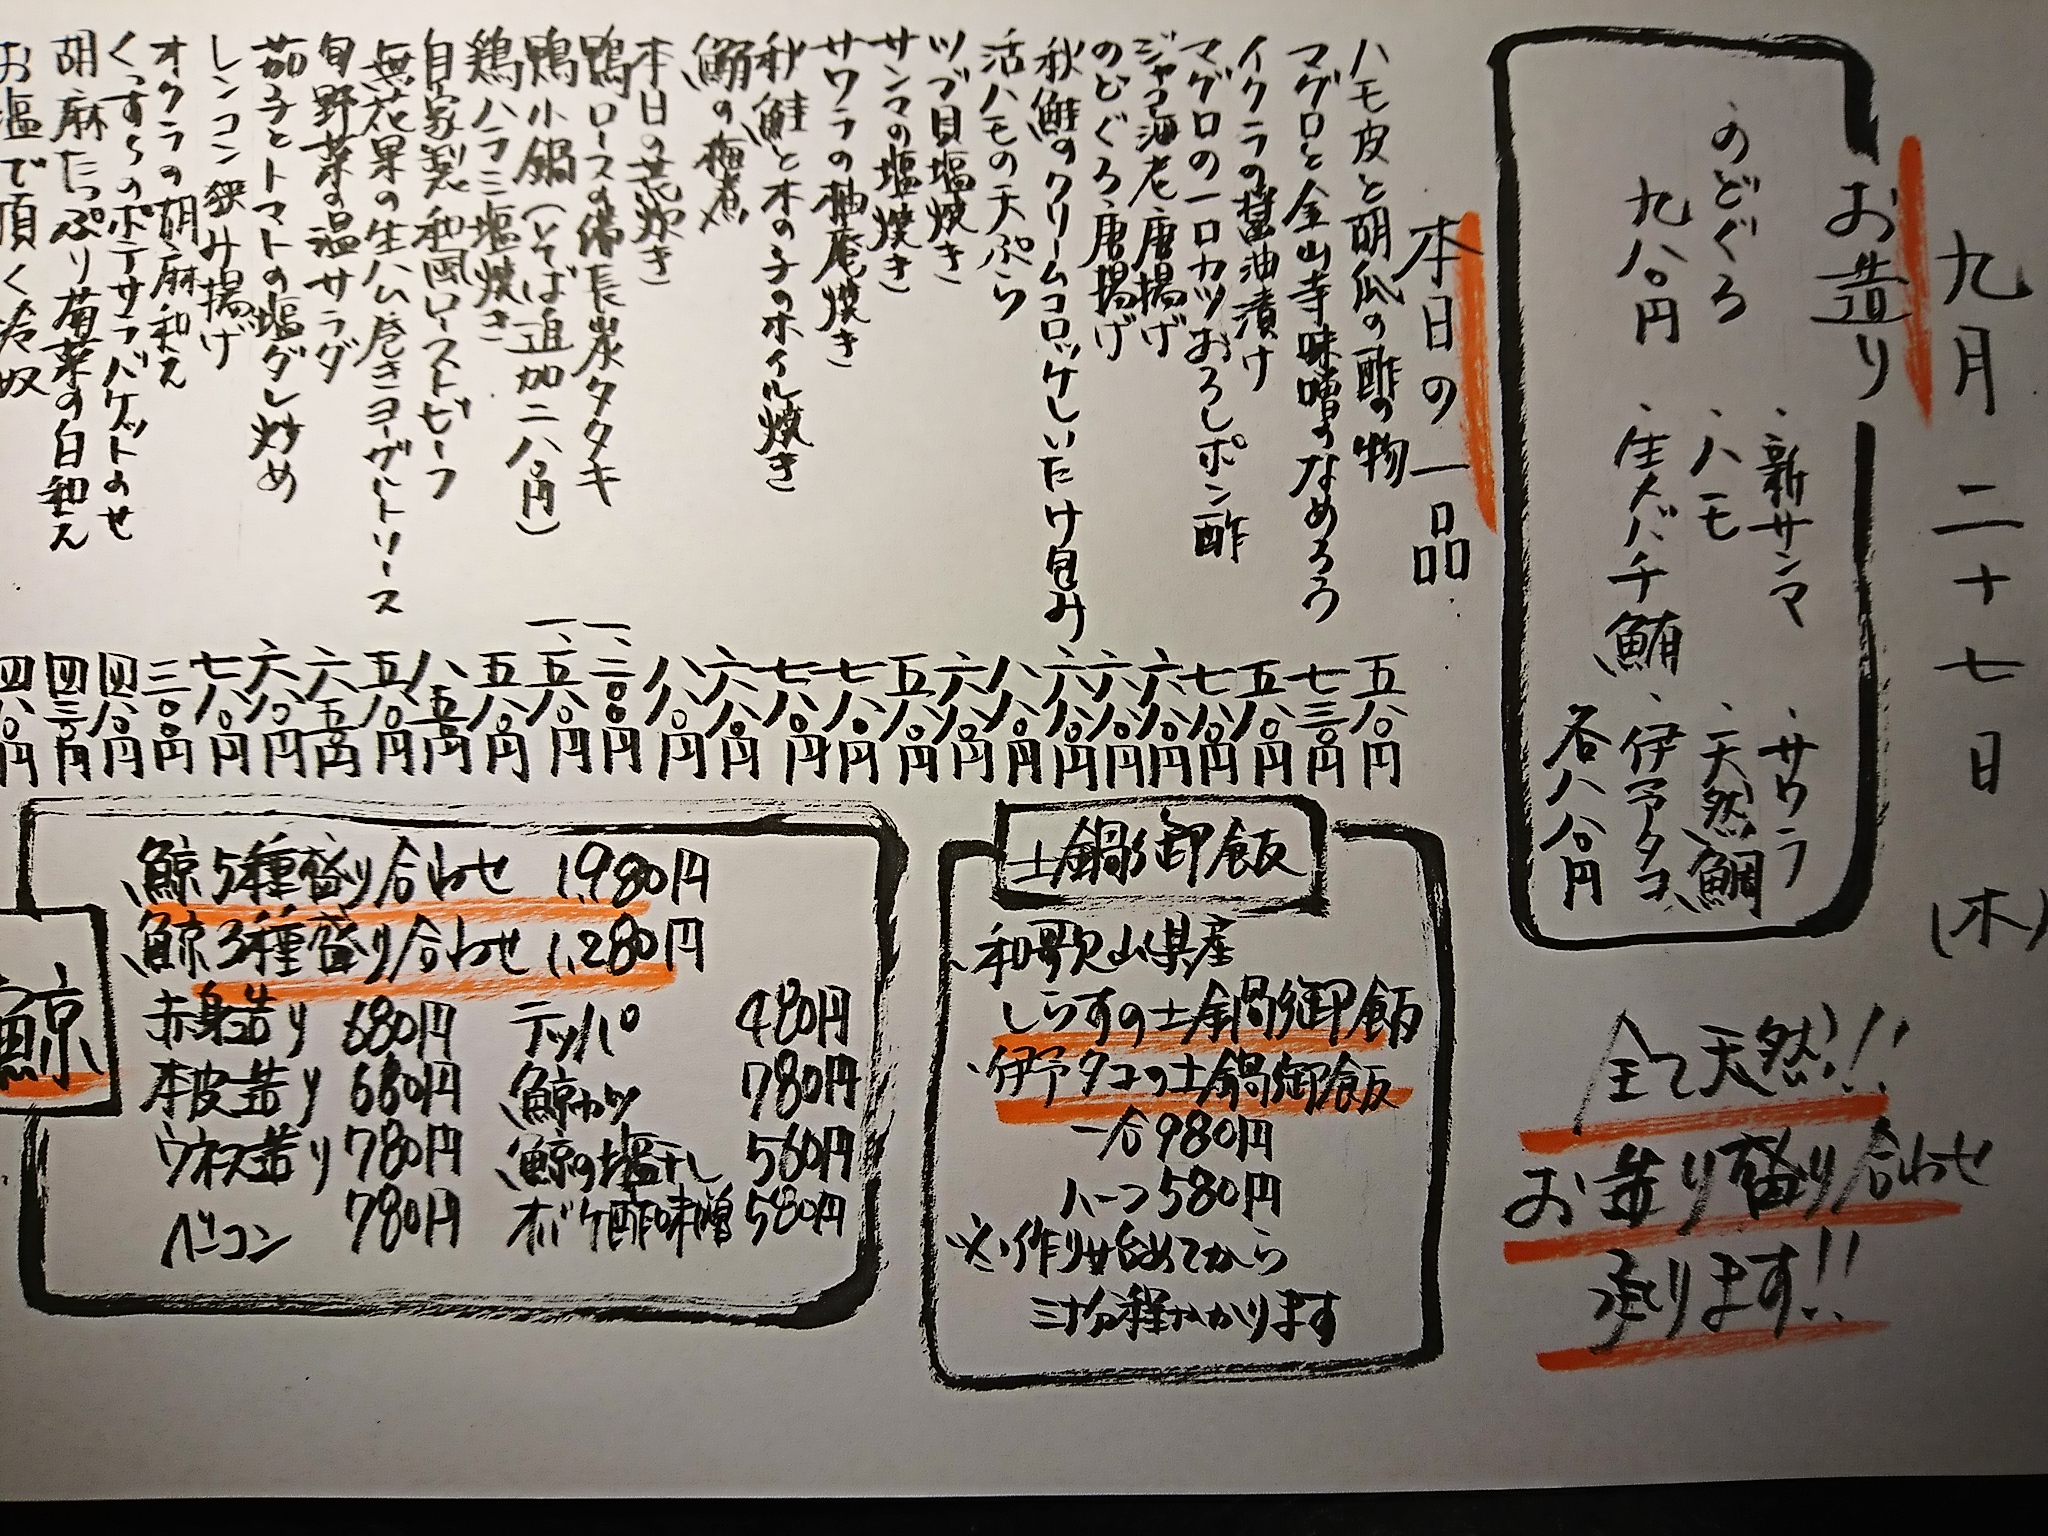 九月二十七日(木)
お造り
・新サンマ
・サワラ
・のどぐろ
・ハモ
・天然鯛
九八〇円
・生メバチ鮪
・伊予タコ
各八八〇円
全て天然!!
お造り盛り合わせ
承ります!!
本日の一品
ハモ皮と胡瓜の酢の物 五八〇円
マグロと金山寺味噌のなめろう 七三〇円
イクラの醤油漬け 五八〇円
マグロの一口カツおろしポン酢 七八〇円
ジャコ海老唐揚げ 六八〇円
のどぐろ唐揚げ 六八〇円
秋鮭のクリームコロッケしいたけ包み 六八〇円
活ハモの天ぷら 八八〇円
ツブ貝塩焼き 六八〇円
サンマの塩焼き 五八〇円
サワラの柚庵焼き 七八〇円
秋鮭と木の子のホイル焼き 七八〇円
鰯の梅煮 六八〇円
本日の荒炊き 八八〇円
鴨ロースの備長炭タタキ 一、二〇〇円
鴨小鍋(そば追加二八〇円) 一、五八〇円
鶏ハラミ塩焼き 五八〇円
自家製和風ローストビーフ 八五〇円
無花果の生ハム巻きヨーグルトソース 五八〇円
旬野菜の温サラダ 六五〇円
茄子とトマトの塩ダレ炒め 六八〇円
レンコン挟み揚げ 七八〇円
オクラの胡麻和え 三〇〇円
くっすらのポテサラバケットのせ 四八〇円
胡麻たっぷり菊菜の白和え 四三〇円
お塩で頂く冷奴 四八〇円
土鍋御飯
・和歌山県産
しらすの土鍋御飯
・伊予タコの土鍋御飯
一合980円
ハーフ580円
※作り始めてから
三十分程かかります
鯨
・鯨5種盛り合わせ 1,980円
・鯨3種盛り合わせ 1,280円
赤身造り 680円 テッパ 480円
本皮造り 680円 鯨カツ 780円
ウネス造り 780円 鯨の塩干し 560円
ベーコン 780円 オバケ酢味噌 580円